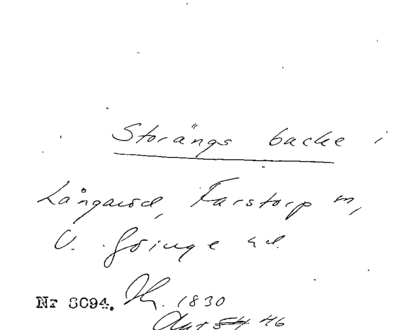 Storängs backe i
Långaröd, Farstorp sn,
V. Göinge hd.
Nr 8094. 1830
46